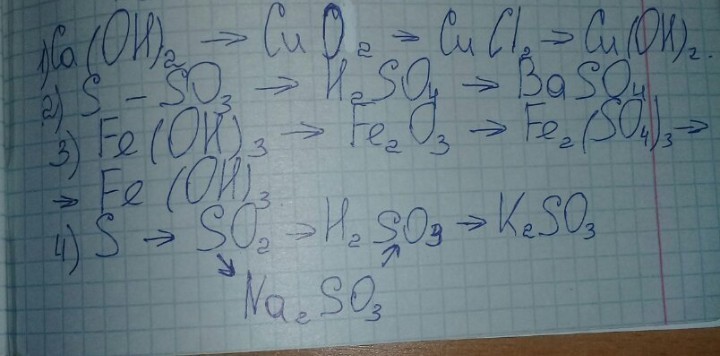 1) Ca(OH)₂ → CuO₂ → CuCl₂ → Cu(OH)₂.
2) S – SO₃ → H₂SO₄ → BaSO₄
3) Fe(OH)₃ → Fe₂O₃ → Fe₂(SO₄)₃ →
→ Fe(OH)₃
4) S → SO₂ → H₂SO₃ → K₂SO₃
↘ ↗
Na₂SO₃